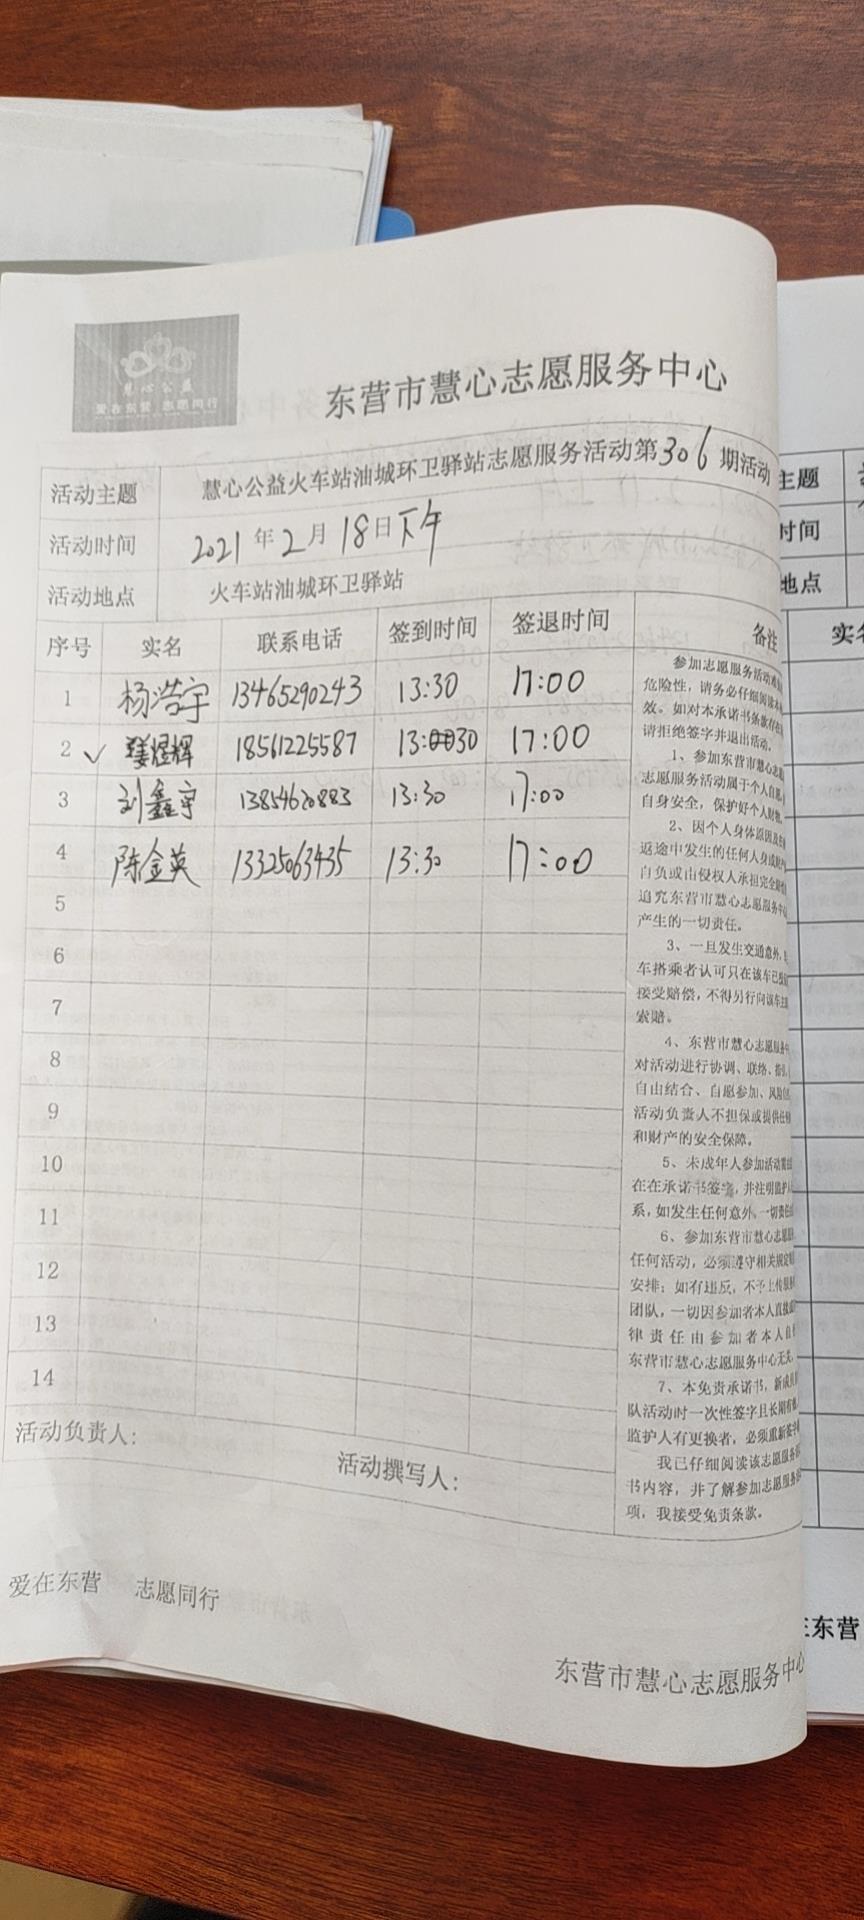 慧心公益
爱在东营 志愿同行
东营市慧心志愿服务中心
活动主题 慧心公益火车站油城环卫驿站志愿服务活动第306期活动
活动时间 2021年2月18日下午
活动地点 火车站油城环卫驿站
序号 实名 联系电话 签到时间 签退时间 备注
1 杨浩宇 13465290243 13:30 17:00
2 ✓ 煜辉 18561225587 13:30 17:00
3 刘鑫宇 13854620883 13:30 17:00
4 陈金英 13325063435 13:30 17:00
5
6
7
8
9
10
11
12
13
14
参加志愿服务活动
危险性，请务必仔细阅读
效。如对本承诺书条款存
请拒绝签字并退出活动。
1、参加东营市慧心志
志愿服务活动属于个人自
自身安全，保护好个人财物。
2、因个人身体原因及
返途中发生的任何人身
自负或由侵权人承担完全
追究东营市慧心志愿服务中
产生的一切责任。
3、一旦发生交通意外，
车搭乘者认可只在该车已
接受赔偿，不得另行向该车主
索赔。
4、东营市慧心志愿服务
对活动进行协调、联络、指
自由结合、自愿参加、风险
活动负责人不担保或提供任
和财产的安全保障。
5、未成年人参加活动需
在在承诺书签字，并注明监护
系，如发生任何意外，一切责任
6、参加东营市慧心志愿
任何活动，必须遵守相关规定
安排；如有违反，不予上传服
团队，一切因参加者本人直接
律责任由参加者本人自
东营市慧心志愿服务中心无关。
7、本免责承诺书，新成员
队活动时一次性签字且长期有
监护人有更换者，必须重新签
我已仔细阅读该志愿服务
书内容，并了解参加志愿服务
项，我接受免责条款。
活动负责人： 活动撰写人：
爱在东营 志愿同行
东营市慧心志愿服务中心
主题
时间
地点
实名
在东营